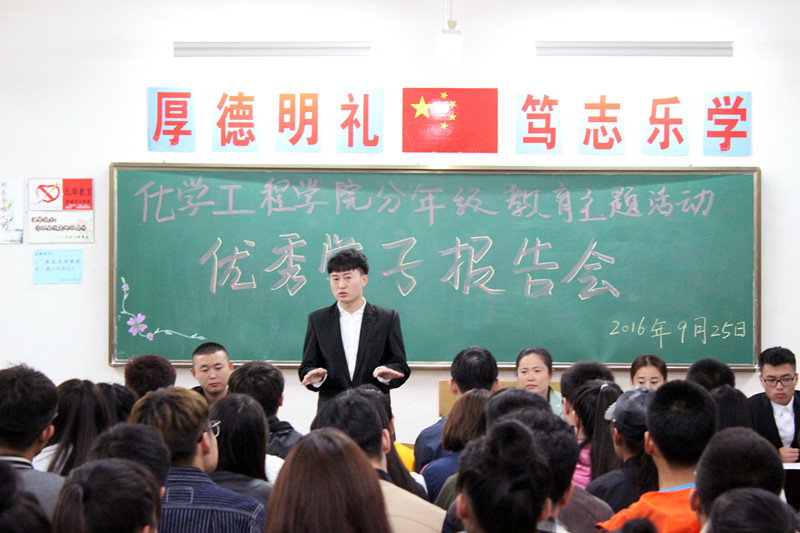 厚德明礼 笃志乐学
化学工程学院分年级教育主题活动
优秀学子报告会
2016年9月25日